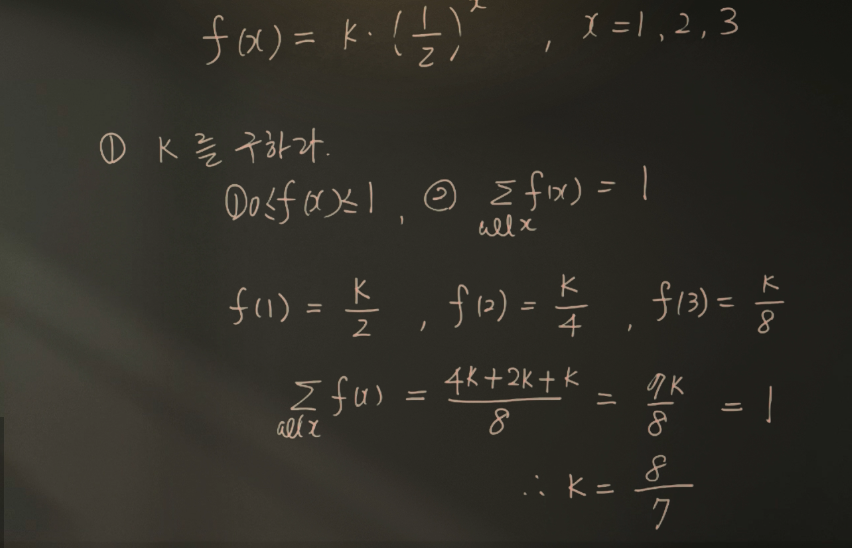 f(x) = k·(1/2)^x , x = 1, 2, 3
① K를 구하라.
① 0≤f(x)≤1, ② Σ_{all x} f(x) = 1
f(1) = K/2 , f(2) = K/4 , f(3) = K/8
Σ_{all x} f(x) = (4K+2K+K)/8 = 7K/8 = 1
∴ K = 8/7